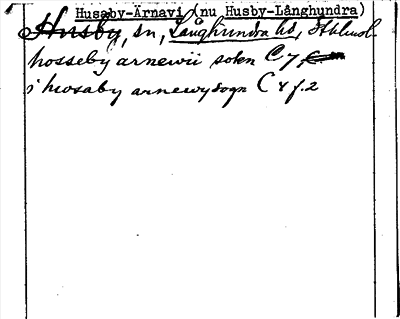 Husaby-Ärnavi (nu Husby-Långhundra)
Husby, sn, Långhundra hd, Sthlms l.
hosseby arnewii sokn C 7
i hwosaby arnewysogn C 8 f. 2